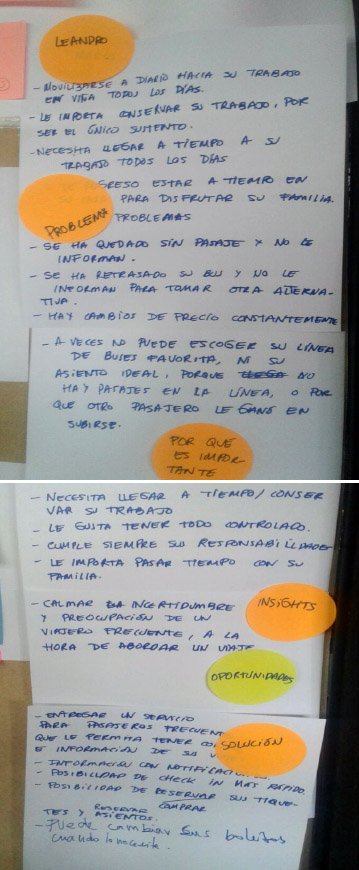 LEANDRO
- MOVILIZARSE A DIARIO HACIA SU TRABAJO
EN VIÑA TODOS LOS DÍAS.
- LE IMPORTA CONSERVAR SU TRABAJO, POR
SER EL ÚNICO SUSTENTO.
- NECESITA LLEGAR A TIEMPO A SU
TRABAJO TODOS LOS DÍAS
GRESO ESTAR A TIEMPO EN
PARA DISFRUTAR SU FAMILIA.
PROBLEMA
PROBLEMAS
- SE HA QUEDADO SIN PASAJE Y NO LE
INFORMAN.
- SE HA RETRASADO SU BUS Y NO LE
INFORMAN PARA TOMAR OTRA ALTERNA-
TIVA.
- HAY CAMBIOS DE PRECIO CONSTANTEMENTE
- A VECES NO PUEDE ESCOGER SU LÍNEA
DE BUSES FAVORITA, NI SU
ASIENTO IDEAL, PORQUE NO
HAY PASAJES EN LA LÍNEA, O POR
QUE OTRO PASAJERO LE GANÓ EN
SUBIRSE.
POR QUE
ES IMPOR-
TANTE
- NECESITA LLEGAR A TIEMPO/CONSER
VAR SU TRABAJO
- LE GUSTA TENER TODO CONTROLADO.
- CUMPLE SIEMPRE SUS RESPONSABILIDADES
- LE IMPORTA PASAR TIEMPO CON SU
FAMILIA.
INSIGHTS
- CALMAR LA INCERTIDUMBRE
Y PREOCUPACIÓN DE UN
VIAJERO FRECUENTE, A LA
HORA DE ABORDAR UN VIAJE
OPORTUNIDADES
SOLUCIÓN
- ENTREGAR UN SERVICIO
PARA PASAJEROS FRECUENT
QUE LE PERMITA TENER CO
E INFORMACIÓN DE SU V
- INFORMACIÓN CON NOTIFICAC
- POSIBILIDAD DE CHECK IN MAS RÁPIDO.
- POSIBILIDAD DE RESERVAR SUS TIQUE-
TES Y RESERVAR COMPRAR
ASIENTOS.
- Puede cambiar sus boletos
cuando lo necesite.